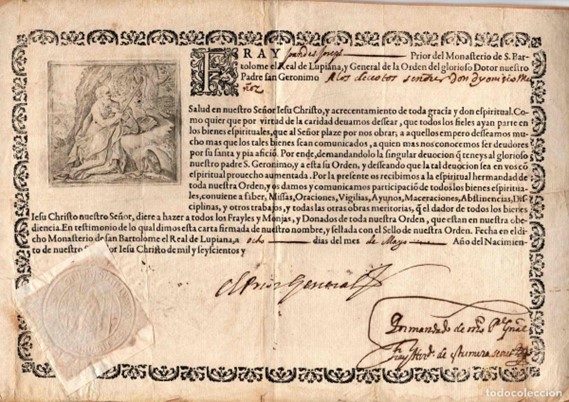 FRAY Prior del Monasterio de S. Bar-
tolome el Real de Lupiana, y General de la Orden del glorioso Dotor nuestro
Padre san Geronimo A los devotos señores Don dyonisio
Salud en nuestro Señor Iesu Christo, y acrecentamiento de toda gracia y don espiritual. Co-
mo quier que por virtud de la caridad deuamos dessear, que todos los fieles ayan parte en
los bienes espirituales, que al Señor plaze por nos obrar, a aquellos empero desseamos mu-
cho mas que los tales bienes sean comunicados, a quien mas nos conocemos ser deudores
por su santa y pia afició. Por ende, demandandolo la singular deuocion q̃ teneys al glorioso
nuestro padre S. Geronimo, y a esta su Orden, y desseando que la tal deuocion sea en vos cõ
espiritual prouecho aumentada. Por la presente os recibimos a la espiritual hermandad de
toda nuestra Orden, y os damos y comunicamos participació de todos los bienes espiritua-
les, conuiene a saber, Missas, Oraciones, Vigilias, Ayunos, Maceraciones, Abstinencias, Dis-
ciplinas, y otros trabajos, y todas las otras obras meritorias, q̃ el dador de todos los bienes
Iesu Christo nuestro Señor, diere a hazer a todos los Frayles y Monjas, y Donados de toda nuestra Orden, que estan en nuestra obe-
diencia. En testimonio de lo qual dimos esta carta firmada de nuestro nombre, y sellada con el Sello de nuestra Orden. Fecha en el di-
cho Monasterio de san Bartolome el Real de Lupiana, a ocho dias del mes de Mayo Año del Nacimien-
to de nuestro or Iesu Christo de mil y seyscientos y
el Prior General
Por mandado de nro P.e Gñal
Fray de
todocoleccion